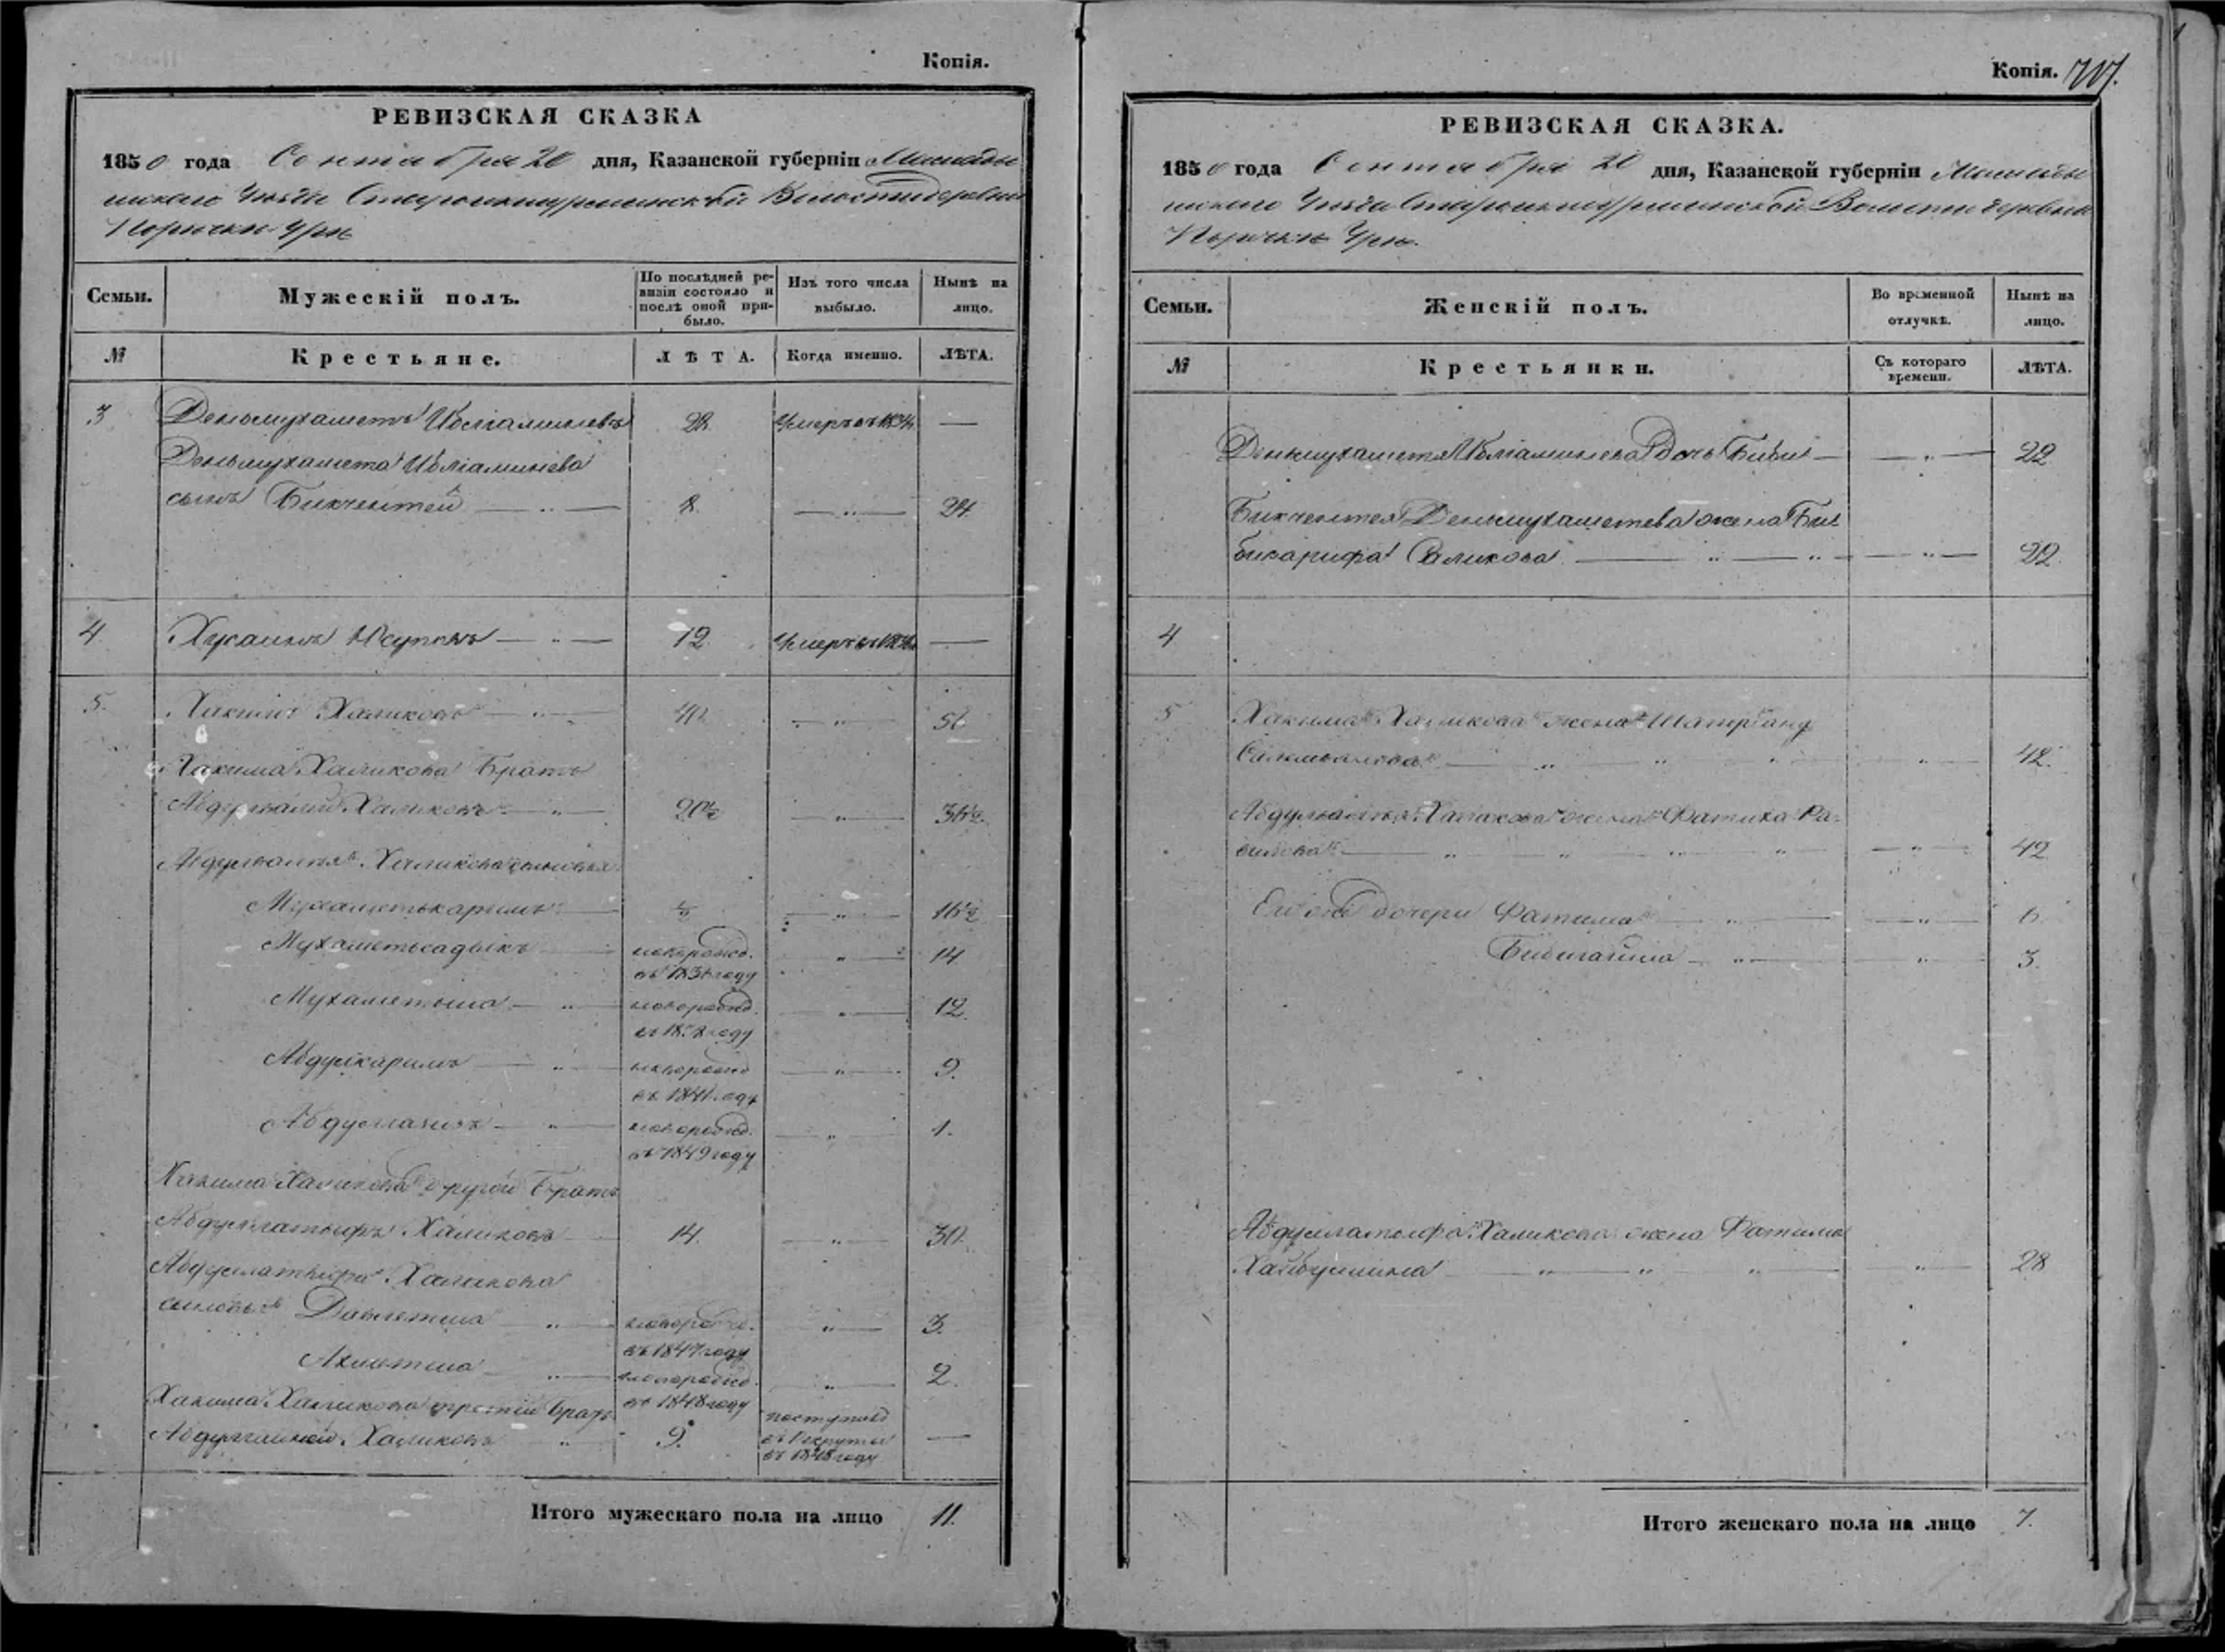 Копія.
РЕВИЗСКАЯ СКАЗКА
1850 года Сентября 20 дня, Казанской губерніи Мамады
шскаго Уѣзда Волости деревни
Порѣчки Ура
Семьи.
Мужескій полъ.
По послѣдней ре-
визіи состояло и
послѣ оной при-
было.
Изъ того числа
выбыло.
Нынѣ на
лицо.
№
Крестьяне.
ЛѢТА.
Когда именно.
ЛѢТА.
3 Деньмухаметъ 28 умеръ въ —
Деньмухамета
сынъ Бикчентей — „ — 8. — „ — 24.
4 Хусаинъ Юсуповъ — „ — 12. умеръ въ —
5. Хакимъ Халиковъ — „ — 40. — „ — 56
Хакима Халикова братъ
Абдулвалій Халиковъ — „ — 20½ — „ — 36½.
Абдулвалія Халикова сыновья
Мухаметькаримъ — ½ — „ — 16½
Мухаметьсадыкъ — новорожд. — „ — 14
въ 1836 году
Мухаметьша — „ — новорожд. — „ — 12.
въ 1838 году
Абдулкаримъ — „ — новорожд. — „ — 9.
въ 1841 году
Абдулганій — „ — новорожд. — „ — 1.
въ 1849 году
Хакима Халикова другой братъ
Абдуллатыфъ Халиковъ — 14. — „ — 30.
Абдуллатыфа Халикова
сыновья Давлетша — „ — новорожд. — „ — 3.
въ 1847 году
Ахметша — „ — новорожд. — „ — 2.
въ 1848 году
Хакима Халикова третій братъ поступилъ
Халиковъ — „ — 9. въ рекруты —
въ 1848 году
Итого мужескаго пола на лицо 11.
Копія. 707.
РЕВИЗСКАЯ СКАЗКА.
1850 года Сентября 20 дня, Казанской губерніи Мамады
шскаго Уѣзда Волости деревни
Порѣчки Ура.
Семьи.
Женскій полъ.
Во временной
отлучкѣ.
Нынѣ на
лицо.
№
Крестьянки.
Съ котораго
времени.
ЛѢТА.
Деньмухамета дочь Биби — — „ — 22
Бикчентея Деньмухаметева жена Би
бисарифа Саликова — „ — „ — — „ — 22.
4
5 Хакима Халикова жена
— „ „ „ „ 42.
Абдулвалія Халикова жена Фатиха Ра-
— „ „ „ „ — „ — 42
Ея же дочери Фатима — „ — — „ — 6.
— „ — — „ — 3.
Абдуллатыфа Халикова жена Фатима
Хайбуллина — „ „ „ — „ — 28
Итого женскаго пола на лицо 7.